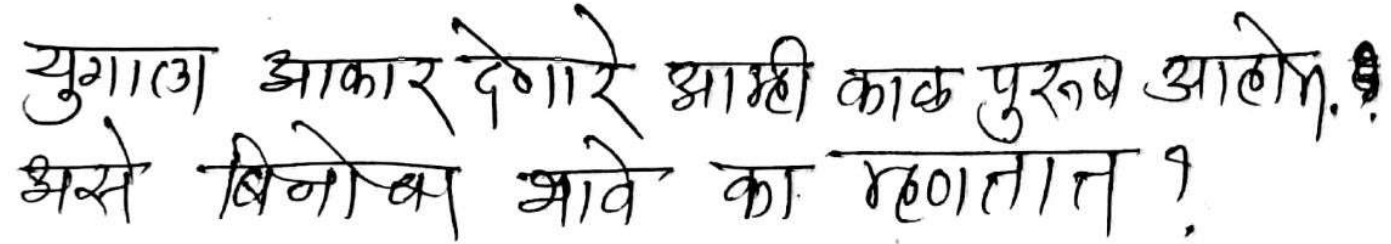 युगाला आकार देणारे आम्ही काळ पुरूष आहोत.
असे विनोबा भावे का म्हणतात ?